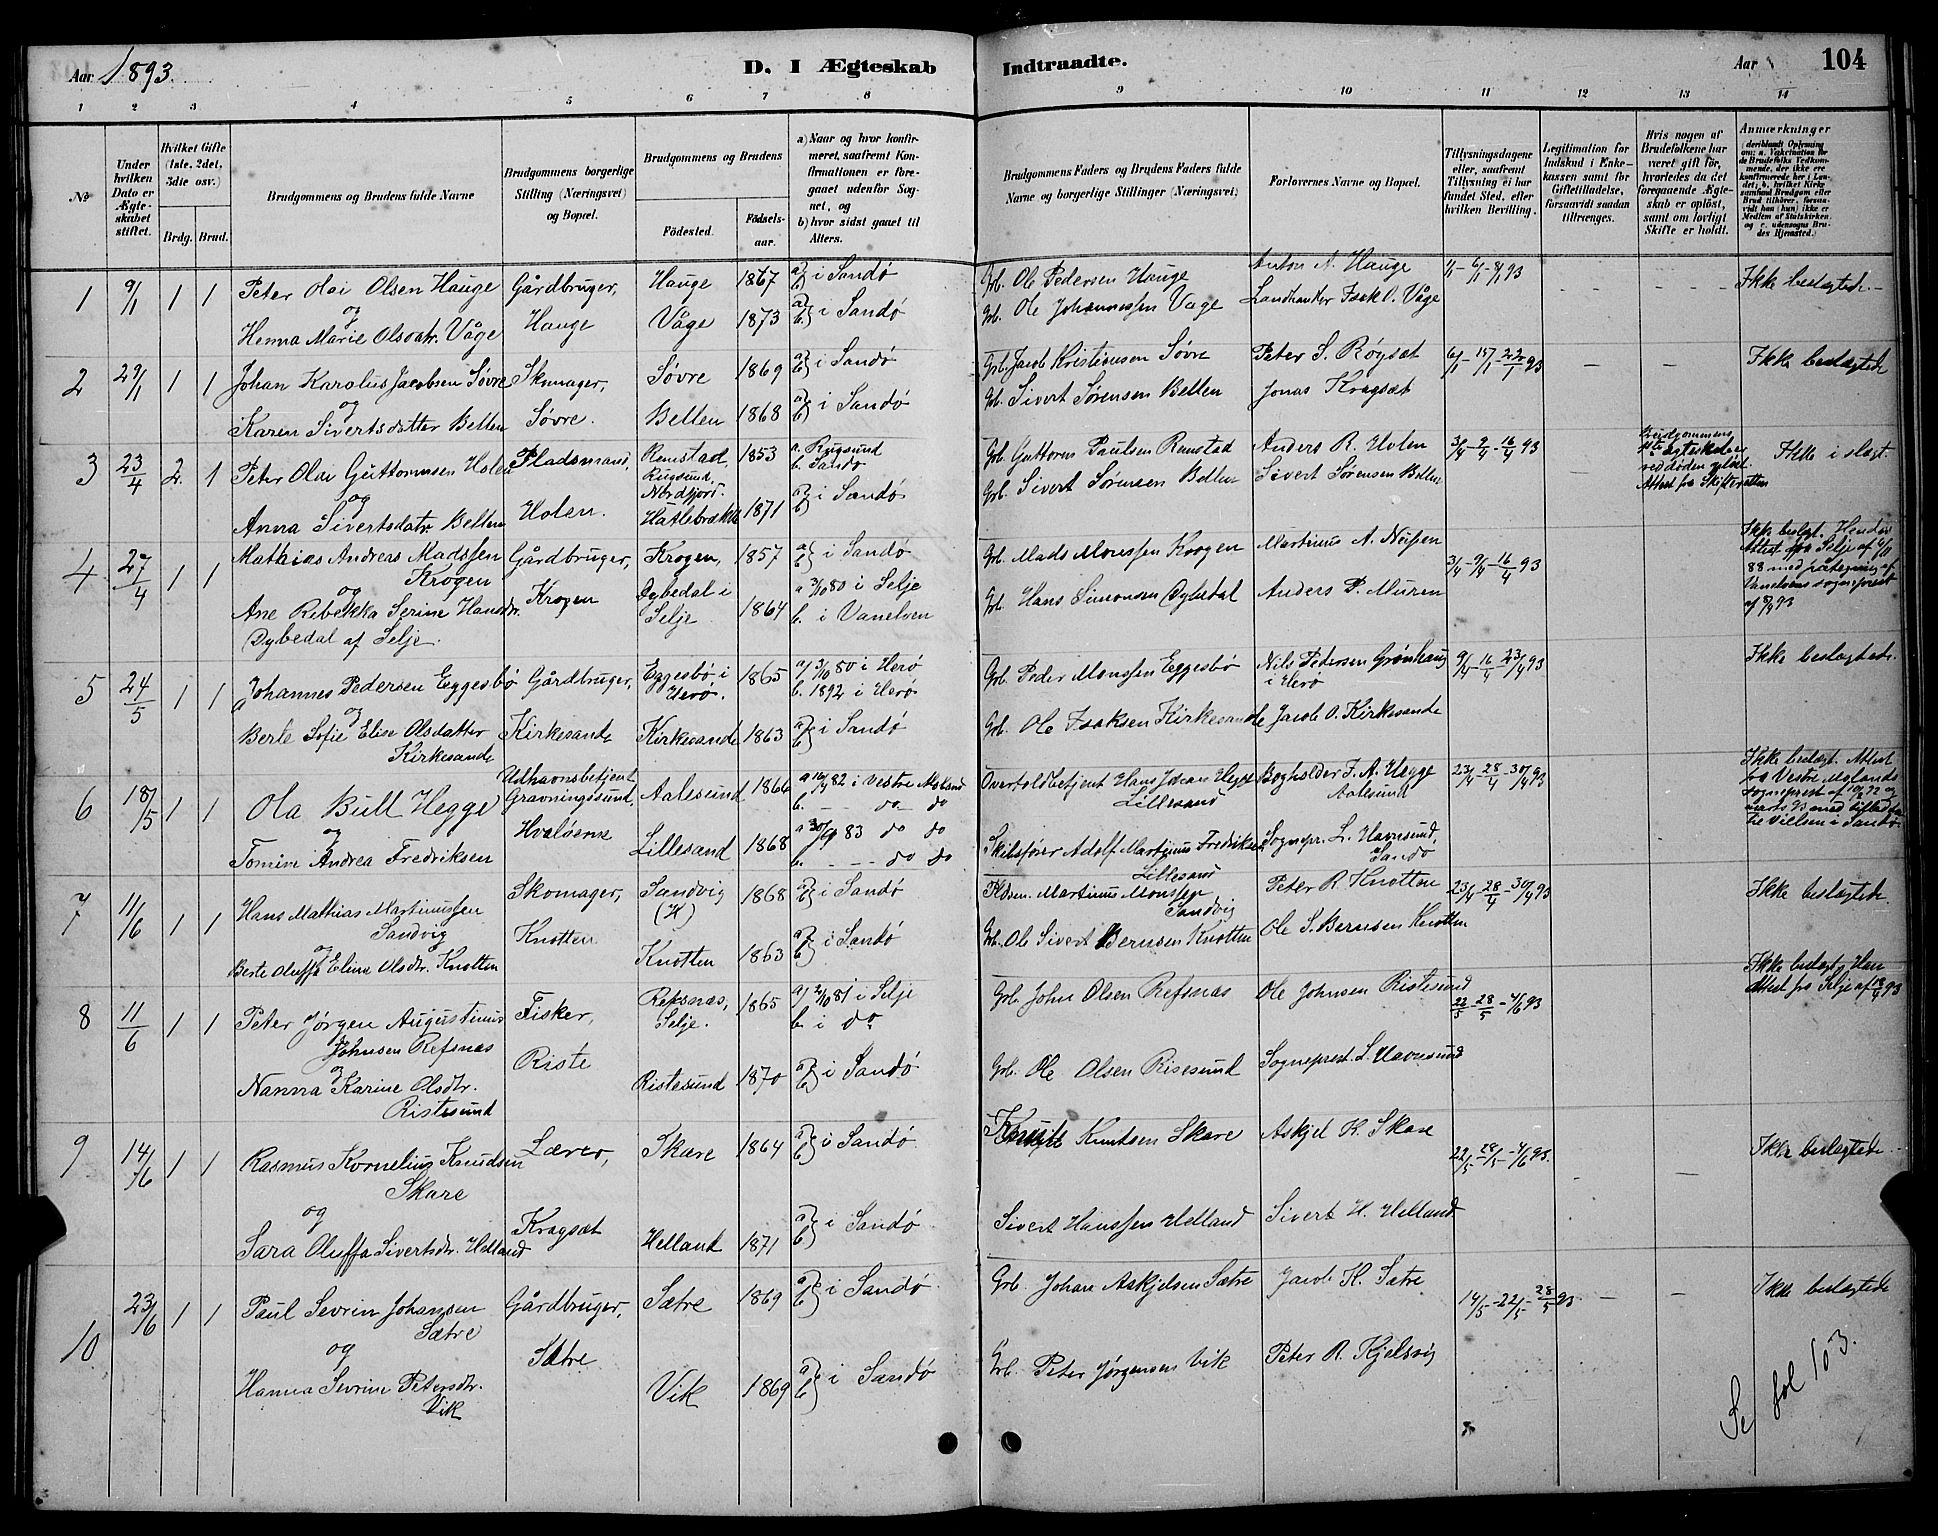 Aar 1893.
D. I Ægteskab
Indtraadte.
Aar
104
1 2 3 4 5 6 7 8 9 10 11 12 13 14
No
Under hvilken Dato er Ægteskabet stiftet.
Hvilket Gifte (1ste, 2det, 3die osv.)
Brdg. Brud.
Brudgommens og Brudens fulde Navne
Brudgommens borgerlige Stilling (Næringsvei) og Bopæl.
Brudgommens og Brudens
Födested.
Födselsaar.
a) Naar og hvor konfirmeret, saafremt Konfirmationen er foregaaet udenfor Sognet, og
b) hvor sidst gaaet til Alters.
Brudgommens Faders og Brudens Faders fulde Navne og borgerlige Stillinger (Næringsvei)
Forlovernes Navne og Bopæl.
Tillysningsdagene eller, saafremt Tillysning ei har fundet Sted, efter hvilken Bevilling.
Legitimation for Indskud i Enkekassen samt for Giftetilladelse, forsaavidt saadan tiltrænges.
Hvis nogen af Brudefolkene har været gift før, hvorledes da det foregaaende Ægteskab er oplöst, samt om lovligt Skifte er holdt.
Anmærkninger (deriblandt Oplysning om: a. Vakcination for de Brudefolks Vedkommende, der ikke ere konfirmerede her i Landet; b. hvilket Kirkesamfund Brudgom eller Brud tilhörer, forsaavidt han (hun) ikke er Medlem af Statskirken, og c. udensogns Brudes Hjemsted.)
1 9/1 1 1 Peter Olai Olsen Hauge Gårdbruger, Hauge 1867 a b } i Sandö Grb. Ole Pedersen Hauge Anton A. Hauge 1/1 - 6/1 - 8/1 93 Ikke beslægtede.
og
Henna Marie Olsdatr. Våge Hauge Våge 1873 a b } i Sandö Grb. Ole Johannessen Vage Landhandler Isak O. Våge
2 29/1 1 1 Johan Karolus Jacobsen Søvre Skomager, Søvre 1869 a b } i Sandö Grb. Jacob Kristensen Søvre Peter S. Røysæt 6/1 - 15/1 - 22/1 93 Ikke beslægtede
og
Karen Sivertsdatter Belten Søvre. Belten 1868 a b } i Sandö Grb. Sivert Sørensen Belten Jonas Kragsæt
3 23/4 2. 1 Peter Olai Guttormsen Holen Pladsmand, Remstad, Rugsund, Nordfjord. 1853 a. Rugsund b. Sandö Grb. Guttorm Paulsen Remstad Anders R. Holen 3/4 - 9/4 - 16/4 93 Brudgommens 1ste ægteskab er ved døden opløst. Attest fra Skifteretten Ikke i slægt.
og
Anna Sivertsdatr. Belten Holen. Hatlebrække 1871 a b } i Sandö Grb. Sivert Sørensen Belten Sivert Sørensen Belten
4 27/4 1 1 Mathias Andreas Madssen Krogen Gårdbruger, Krogen, 1857 a b } i Sandö Grb. Mads Monssen Krogen Martinus A. 3/4 - 9/4 - 16/4 93 Ikke beslægt. Hendes Attest fra Selje af 88 med påtegning af Vanelvens sogneprest af 8/4 93
og
Ane Rebekka Serine Hansdr. Dybedal af Selje. Krogen Dybedal i Selje 1864 a 3/10 80 i Selje b. i Vanelven Grb. Hans Simonsen Dybedal Anders P. Muren
5 24/5 1 1 Johannes Pedersen Eggesbö Gårdbruger, Eggesbö i Herö. 1865 a/ 3/10 80 i Herö b. 1892 i Herö Grb. Peder Monssen Eggesbö Nils Pedersen Grønhaug i Herö 9/4 - 16/4 - 23/4 93 Ikke beslægtede.
og
Berte Sofie Elise Olsdatter Kirkesande Kirkesande Kirkesande 1863 a b } i Sandö Grb. Ole Isaksen Kirkesande Jacob O. Kirkesande
6 18/5 1 1 Ola Bull Hegge Udhavnsbetjent Gravningssund, 1866 Aalesund a 16/4 82 i Vestre Moland b. - - do do Overtoldbetjent Hans Johan Hegge Lillesand Bogholder F. A. Hegge Aalesund 23/4 - 28/4 - 30/4 93 Ikke beslægt. Attest fra Vestre Molands sogneprest
og
Tomine Andrea Fredriksen Hvaløerne Lillesand 1868 a 30/9 83 do do b. - - - do do Skibsfører Adolf Martinius Fredriksen Lillesand Sognepr. L. Havnsund, Sandö
7 11/6 1 1 Hans Mathias Martinussen Sandvig Skomager, Sandvig (H) 1868 a b } i Sandö Pldsm. Martinus Monssen Sandvig Peter R. Knotten 23/4 - 28/4 - 30/4 93 Ikke beslægtede.
og
Berte Oluffa Eline Olsdtr. Knotten Knotten Knotten 1863 a b } i Sandö Grb. Ole Sivert Berntsen Knotten Ole S. Berntsen Knotten
8 11/6 1 1 Peter Jørgen Augustinus Johnsen Refsnas Fisker, Refsnæs, Selje. 1865 a/ 2/10 81 i Selje b. i do. Grb. John Olsen Refsnas Ole Johnsen Ristesund 22/5 - 28/5 - 4/6 93 Ikke beslægt. Hans Attest fra Selje af 18/4 93
og
Nanna Karine Olsdtr. Ristesund Riste Ristesund 1870 a b } i Sandö Grb. Ole Olsen Risesund Sogneprest L. Havnsund
9 14/6 1 1 Rasmus Kornelius Knudsen Skare Lærer, Skare 1864 a b } i Sandö Knut Knutsen Skare Askjel H. Skare 22/5 - 28/5 - 4/6 93. Ikke beslægtede
og
Sara Oluffa Sivertsdr. Helland Kragsæt Helland 1871 a b } i Sandö Sivert Hanssen Helland Sivert H. Helland
10 23/6 1 1 Paul Sevrin Johansen Sætre Gårdbruger, Sætre 1869 a b } i Sandö Grb. Johan Askjelsen Sætre Jacob H. Sætre 14/5 - 22/5 - 28/5 93 Ikke beslægtede
og
Hanna Sevrine Petersdr. Vik Sætre Vik 1869 a b } i Sandö Grb. Peter Jørgensen Vik Peter R. Kjelsvig
Se fol 103.